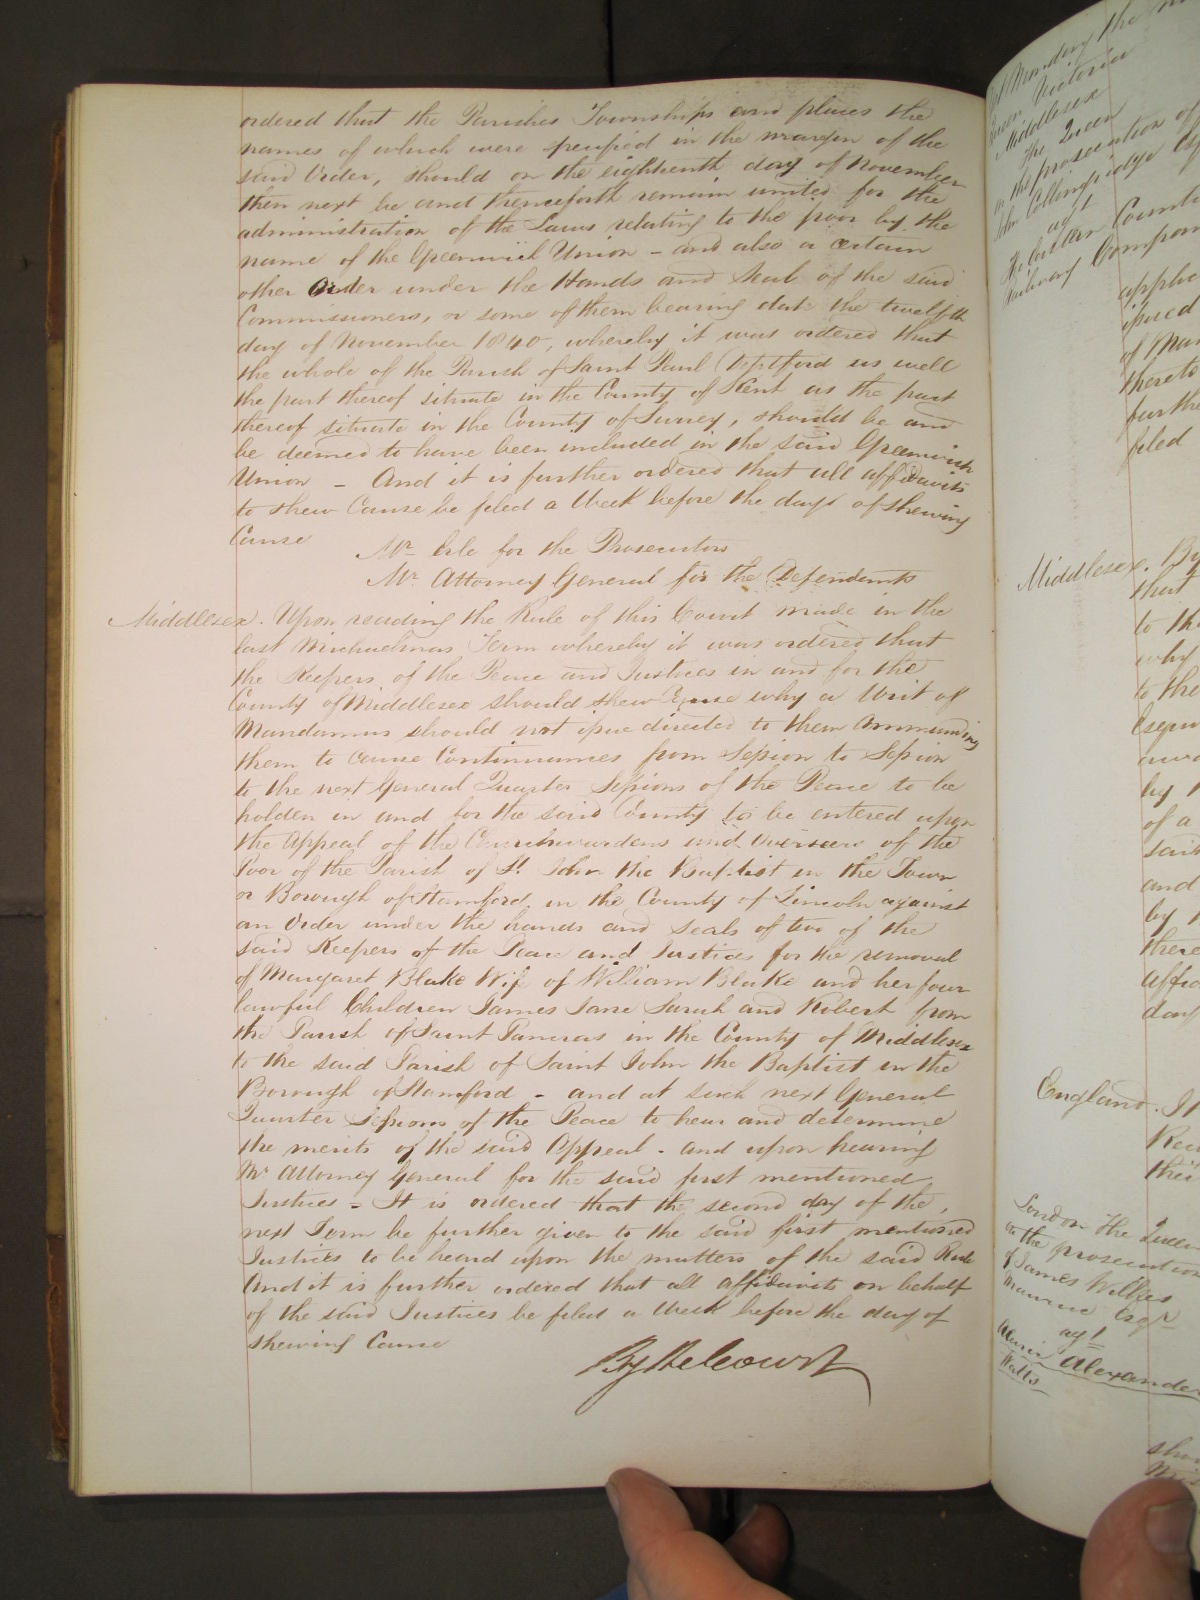 ordered that the Parishes Townships and places the
names of which were specified in the margin of the
said Order, should on the eighteenth day of November
then next be and thenceforth remain united for the
administration of the Laws relating to the poor by the
name of the Greenwich Union – and also a certain
other Order under the Hands and Seal of the said
Commissioners, or some of them bearing date the twelfth
day of November 1840, whereby it was ordered that
the whole of the Parish of Saint Paul Deptford as well
the part thereof situate in the County of Kent as the part
thereof situate in the County of Surrey, should be and
be deemed to have been included in the said Greenwich
Union – And it is further ordered that all affidavits
to shew Cause be filed a Week before the day of shewing
Cause
Mr Erle for the Prosecutors
Mr Attorney General for the Defendants
Middlesex. Upon reading the Rule of this Court made in the
last Michaelmas Term whereby it was ordered that
the Keepers of the Peace and Justices in and for the
County of Middlesex should shew Cause why a Writ of
Mandamus should not issue directed to them Commanding
them to cause Continuances from Session to Session
to the next General Quarter Sessions of the Peace to be
holden in and for the said County to be entered upon
the Appeal of the Churchwardens and Overseers of the
Poor of the Parish of St John the Baptist in the Town
or Borough of Stamford in the County of Lincoln against
an Order under the hands and seals of two of the
said Keepers of the Peace and Justices for the removal
of Margaret Blake Wife of William Blake and her four
lawful Children James Jane Sarah and Robert from
the Parish of Saint Pancras in the County of Middlesex
to the said Parish of Saint John the Baptist in the
Borough of Stamford – and at such next General
Quarter Sessions of the Peace to hear and determine
the merits of the said Appeal – and upon hearing
Mr Attorney General for the said first mentioned
Justices – It is ordered that the second day of the
next Term be further given to the said first mentioned
Justices to be heard upon the matters of the said Rule
And it is further ordered that all affidavits on behalf
of the said Justices be filed a Week before the day of
shewing Cause
By the Court
Monday the
Queen Victoria
Middlesex
The Queen
on the prosecution of
John Collingridge Esq
agt
Railway Compan
applic
issued
of Man
thereto
furthe
filed
Middlesex. By
that
to th
why
to the
by
of a
said
and
by
there
affid
day
England. It
their
London The Queen
on the prosecution
of James Wilkes
Esqr
agt
Alexander
Watts